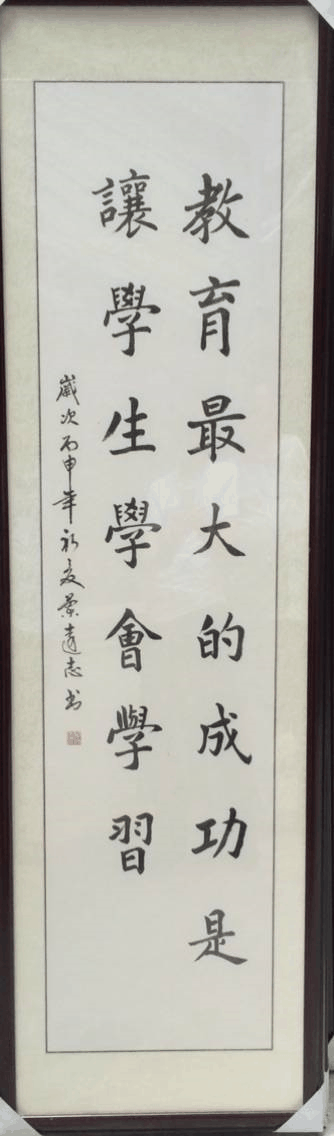 教育最大的成功是
讓學生學會學習
歲次丙申年初夏葉遠志书